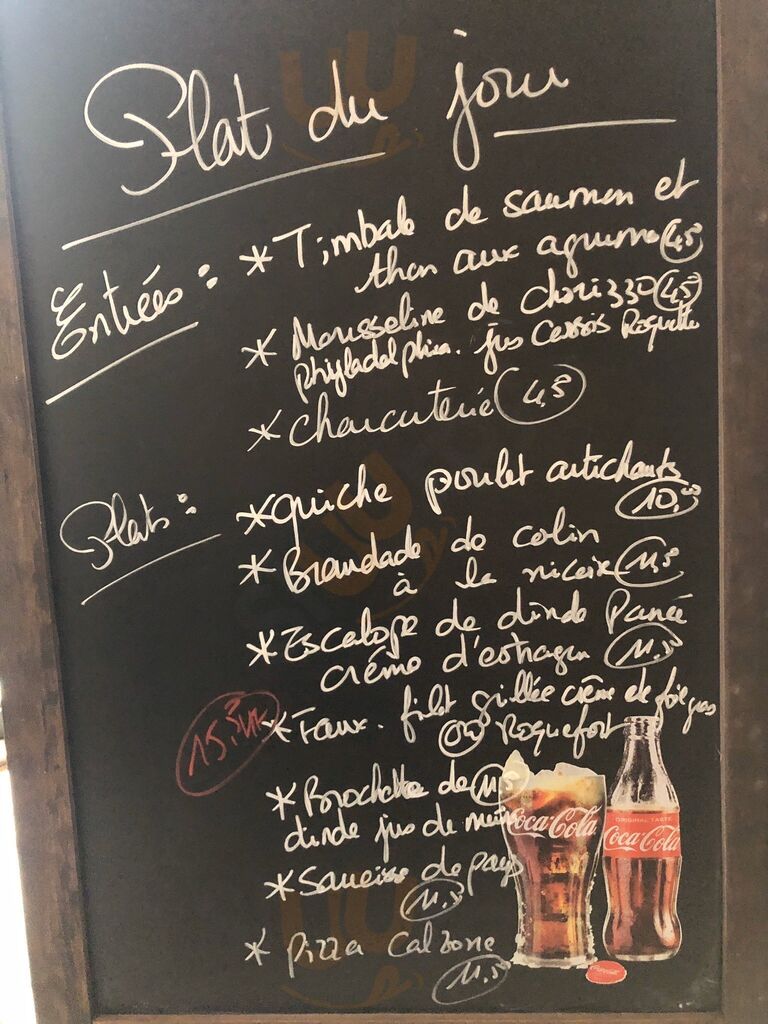 Plat du jour
Entrées : * Timbale de saumon et
thon aux agrumes 4,5
* Mousseline de chorizzo 4,5
Phyladelphia. jus cassis Roquette
* charcuterie 4,5
Plats : * quiche poulet artichauts
10,00
* Brandade de colin
à la niçoise 11,5
* Escalope de dinde Panée
crème d'estragon 11,5
* Faux. filet grillée crème de foie gras
ou Roquefort
* Brochette de 11,5
dinde jus de
* Saucisse de pays
11,5
* Pizza Calzone
11.50
Coca-Cola
ORIGINAL TASTE
Coca-Cola